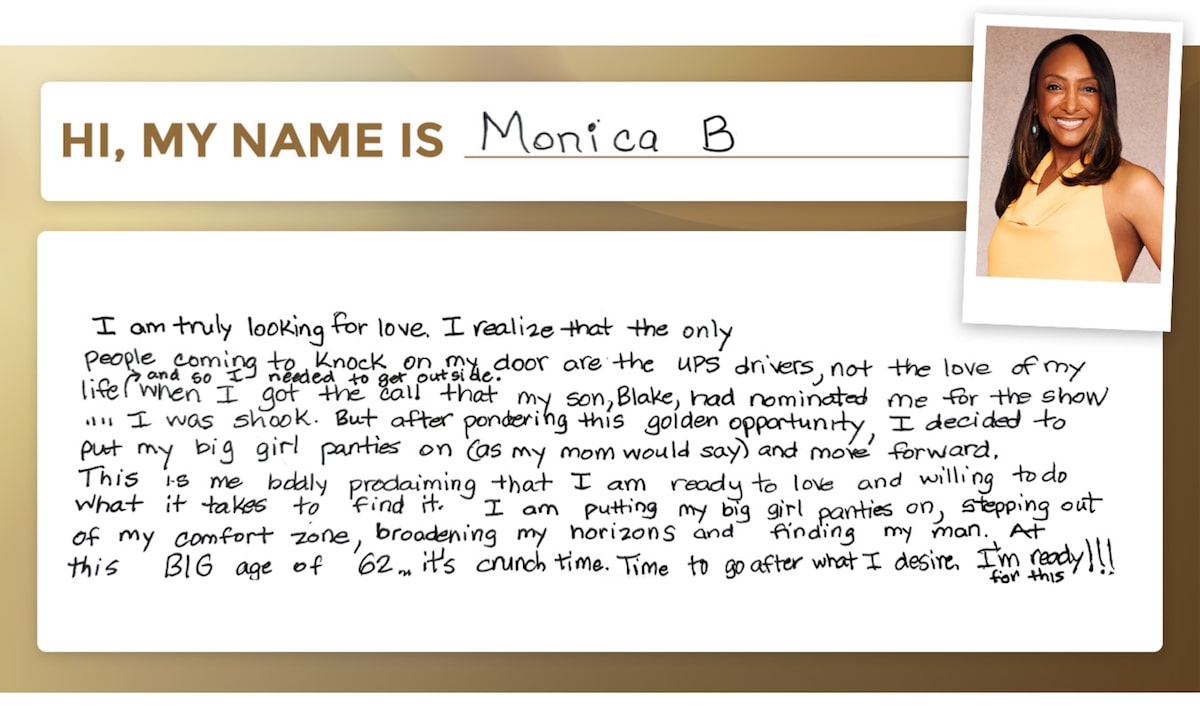 HI, MY NAME IS Monica B
I am truly looking for love. I realize that the only
people coming to knock on my door are the UPS drivers, not the love of my
and so I needed to get outside.
life. When I got the call that my son, Blake, had nominated me for the show
..... I was shook. But after pondering this golden opportunity, I decided to
put my big girl panties on (as my mom would say) and move forward.
This is me boldly proclaiming that I am ready to love and willing to do
what it takes to find it. I am putting my big girl panties on, stepping out
of my comfort zone, broadening my horizons and finding my man. At
this BIG age of 62... it's crunch time. Time to go after what I desire. I'm ready!!!
for this